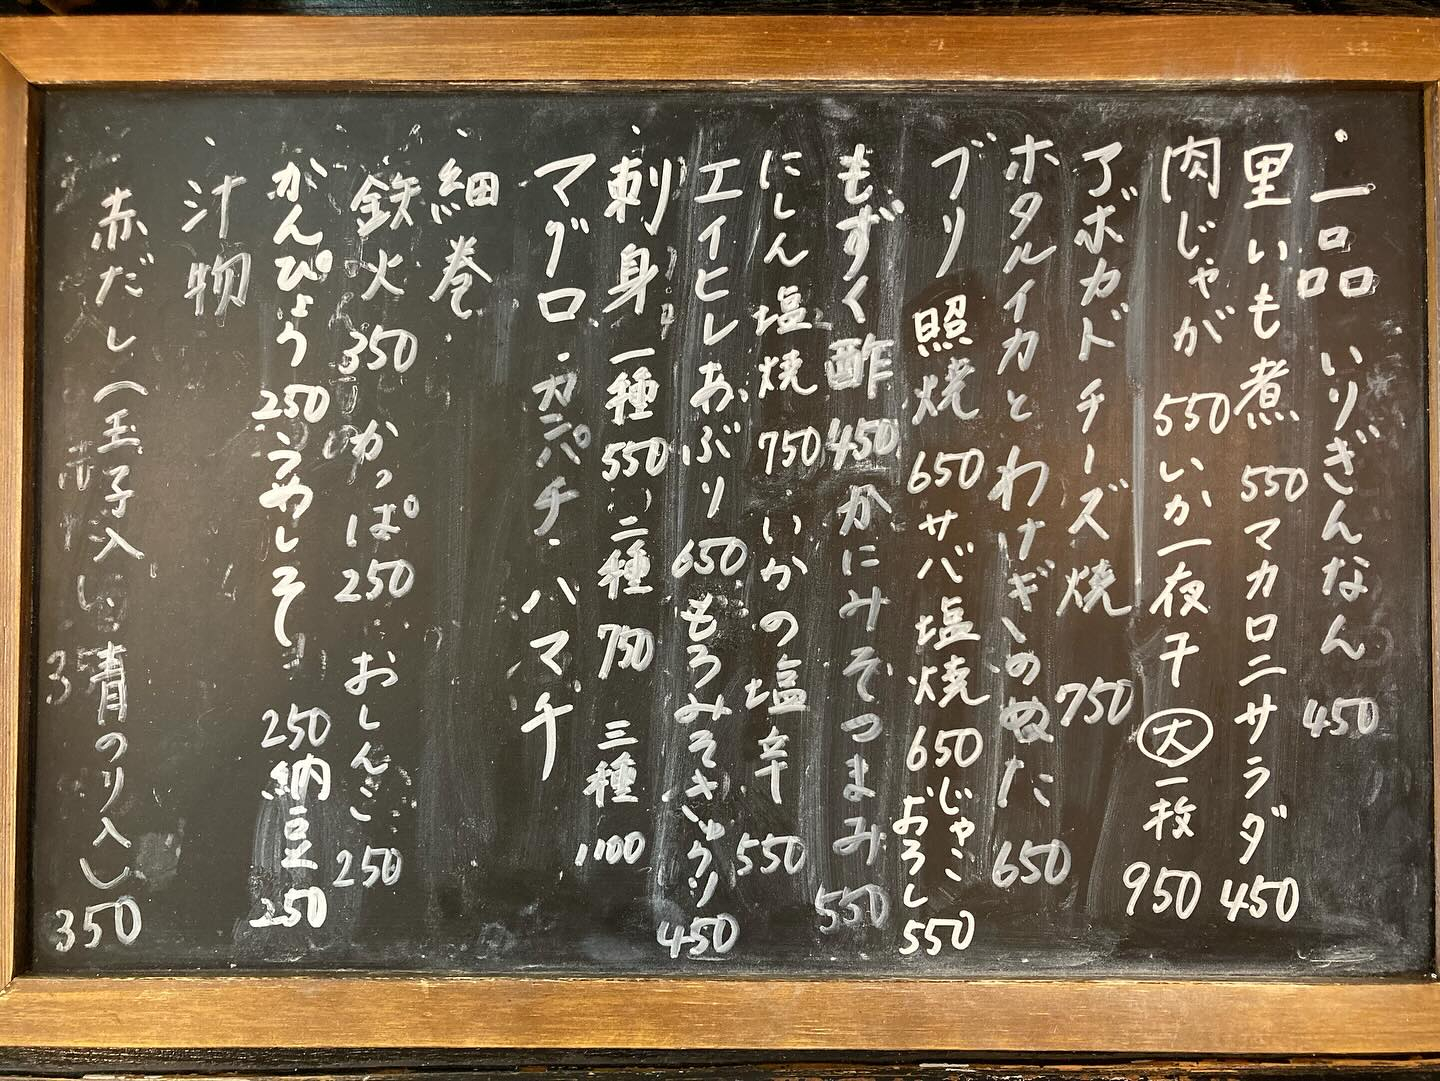 ・一品 いりぎんなん 450
里いも煮 550 マカロニサラダ 450
肉じゃが 550 いか一夜干 大一枚 950
アボカドチーズ焼 750
ホタルイカとわけぎのぬた 650
ブリ照焼 650 サバ塩焼 650 じゃこおろし 550
もずく酢 450 かにみそつまみ 550
にしん塩焼 750 いかの塩辛 550
エイヒレあぶり 650 もろみそきゅうり 450
・刺身 一種 550 二種 750 三種 1100
マグロ・カンパチ・ハマチ
・細巻
鉄火 350 かっぱ 250 おしんこ 250
かんぴょう 250 うめしそ 250 納豆 250
・汁物
赤だし(玉子入り、青のり入り) 350